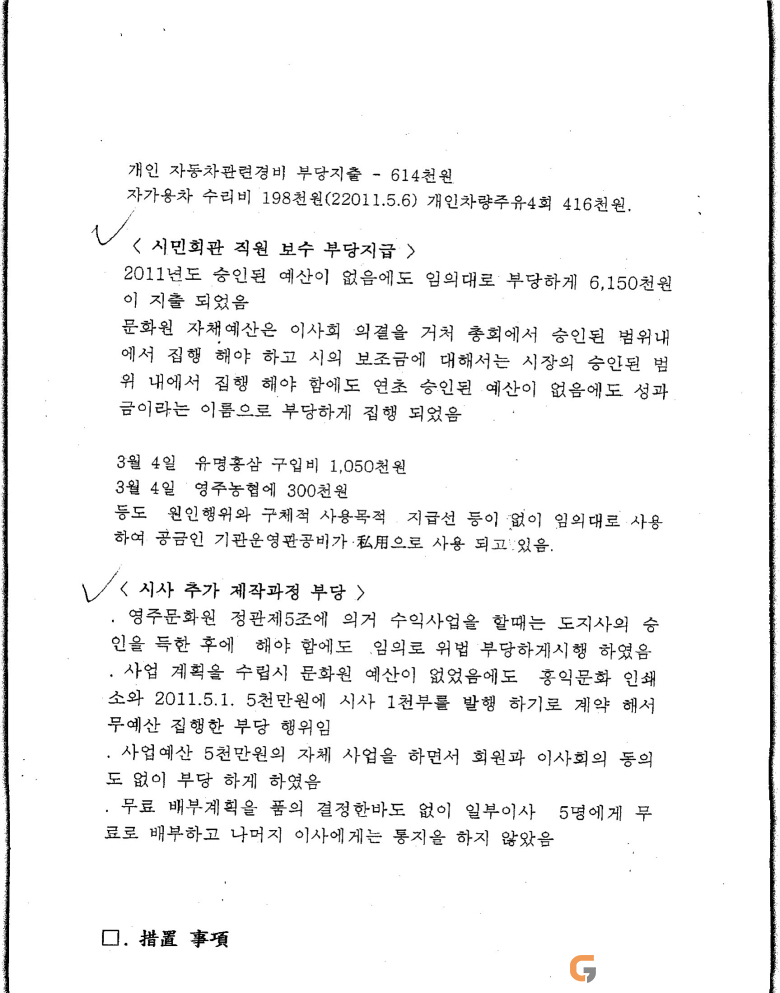 개인 자동차관련경비 부당지출 - 614천원
자가용차 수리비 198천원(22011.5.6) 개인차량주유4회 416천원.
< 시민회관 직원 보수 부당지급 >
2011년도 승인된 예산이 없음에도 임의대로 부당하게 6,150천원
이 지출 되었음
문화원 자체예산은 이사회 의결을 거처 총회에서 승인된 범위내
에서 집행 해야 하고 시의 보조금에 대해서는 시장의 승인된 범
위 내에서 집행 해야 함에도 연초 승인된 예산이 없음에도 성과
금이라는 이름으로 부당하게 집행 되었음
3월 4일 유명홍삼 구입비 1,050천원
3월 4일 영주농협에 300천원
등도 원인행위와 구체적 사용목적 지급선 등이 없이 임의대로 사용
하여 공금인 기관운영관공비가 私用으로 사용 되고 있음.
< 시사 추가 제작과정 부당 >
. 영주문화원 정관제5조에 의거 수익사업을 할때는 도지사의 승
인을 득한 후에 해야 함에도 임의로 위법 부당하게시행 하였음
. 사업 계획을 수립시 문화원 예산이 없었음에도 홍익문화 인쇄
소와 2011.5.1. 5천만원에 시사 1천부를 발행 하기로 계약 해서
무예산 집행한 부당 행위임
. 사업예산 5천만원의 자체 사업을 하면서 회원과 이사회의 동의
도 없이 부당 하게 하였음
. 무료 배부계획을 품의 결정한바도 없이 일부이사 5명에게 무
료로 배부하고 나머지 이사에게는 통지을 하지 않았음
□. 措置 事項
G